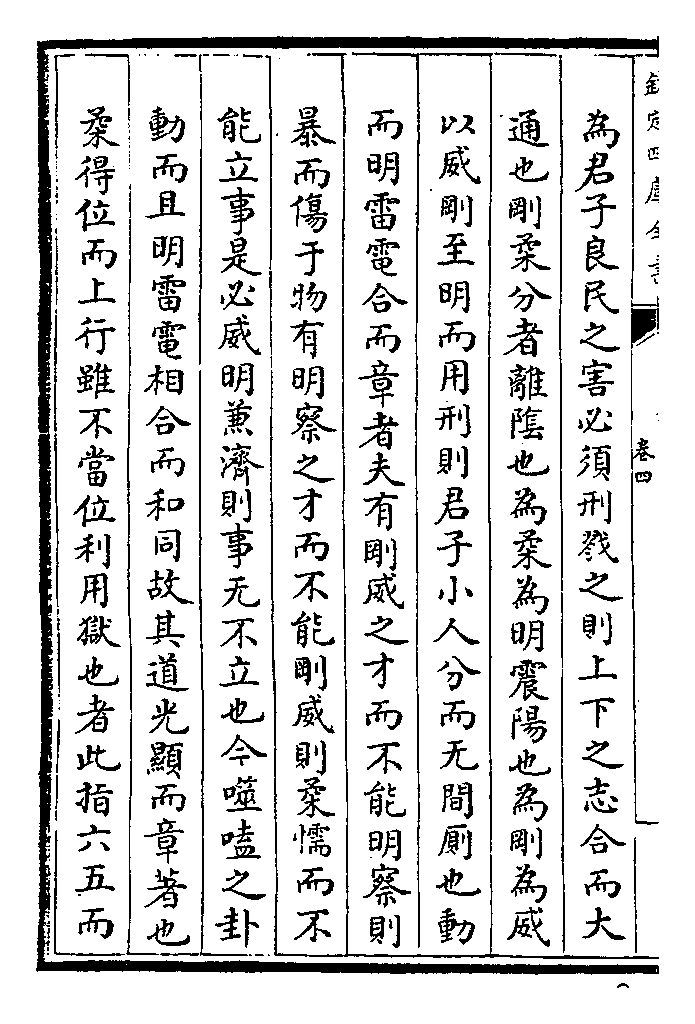 欽定四庫全書
卷四
為君子良民之害必須刑戮之則上下之志合而大
通也剛柔分者離陰也為柔為明震陽也為剛為威
以威剛至明而用刑則君子小人分而无間廁也動
而明雷電合而章者夫有剛威之才而不能明察則
暴而傷于物有明察之才而不能剛威則柔懦而不
能立事是必威明兼濟則事无不立也今噬嗑之卦
動而且明雷電相合而和同故其道光顯而章著也
柔得位而上行雖不當位利用獄也者此指六五而